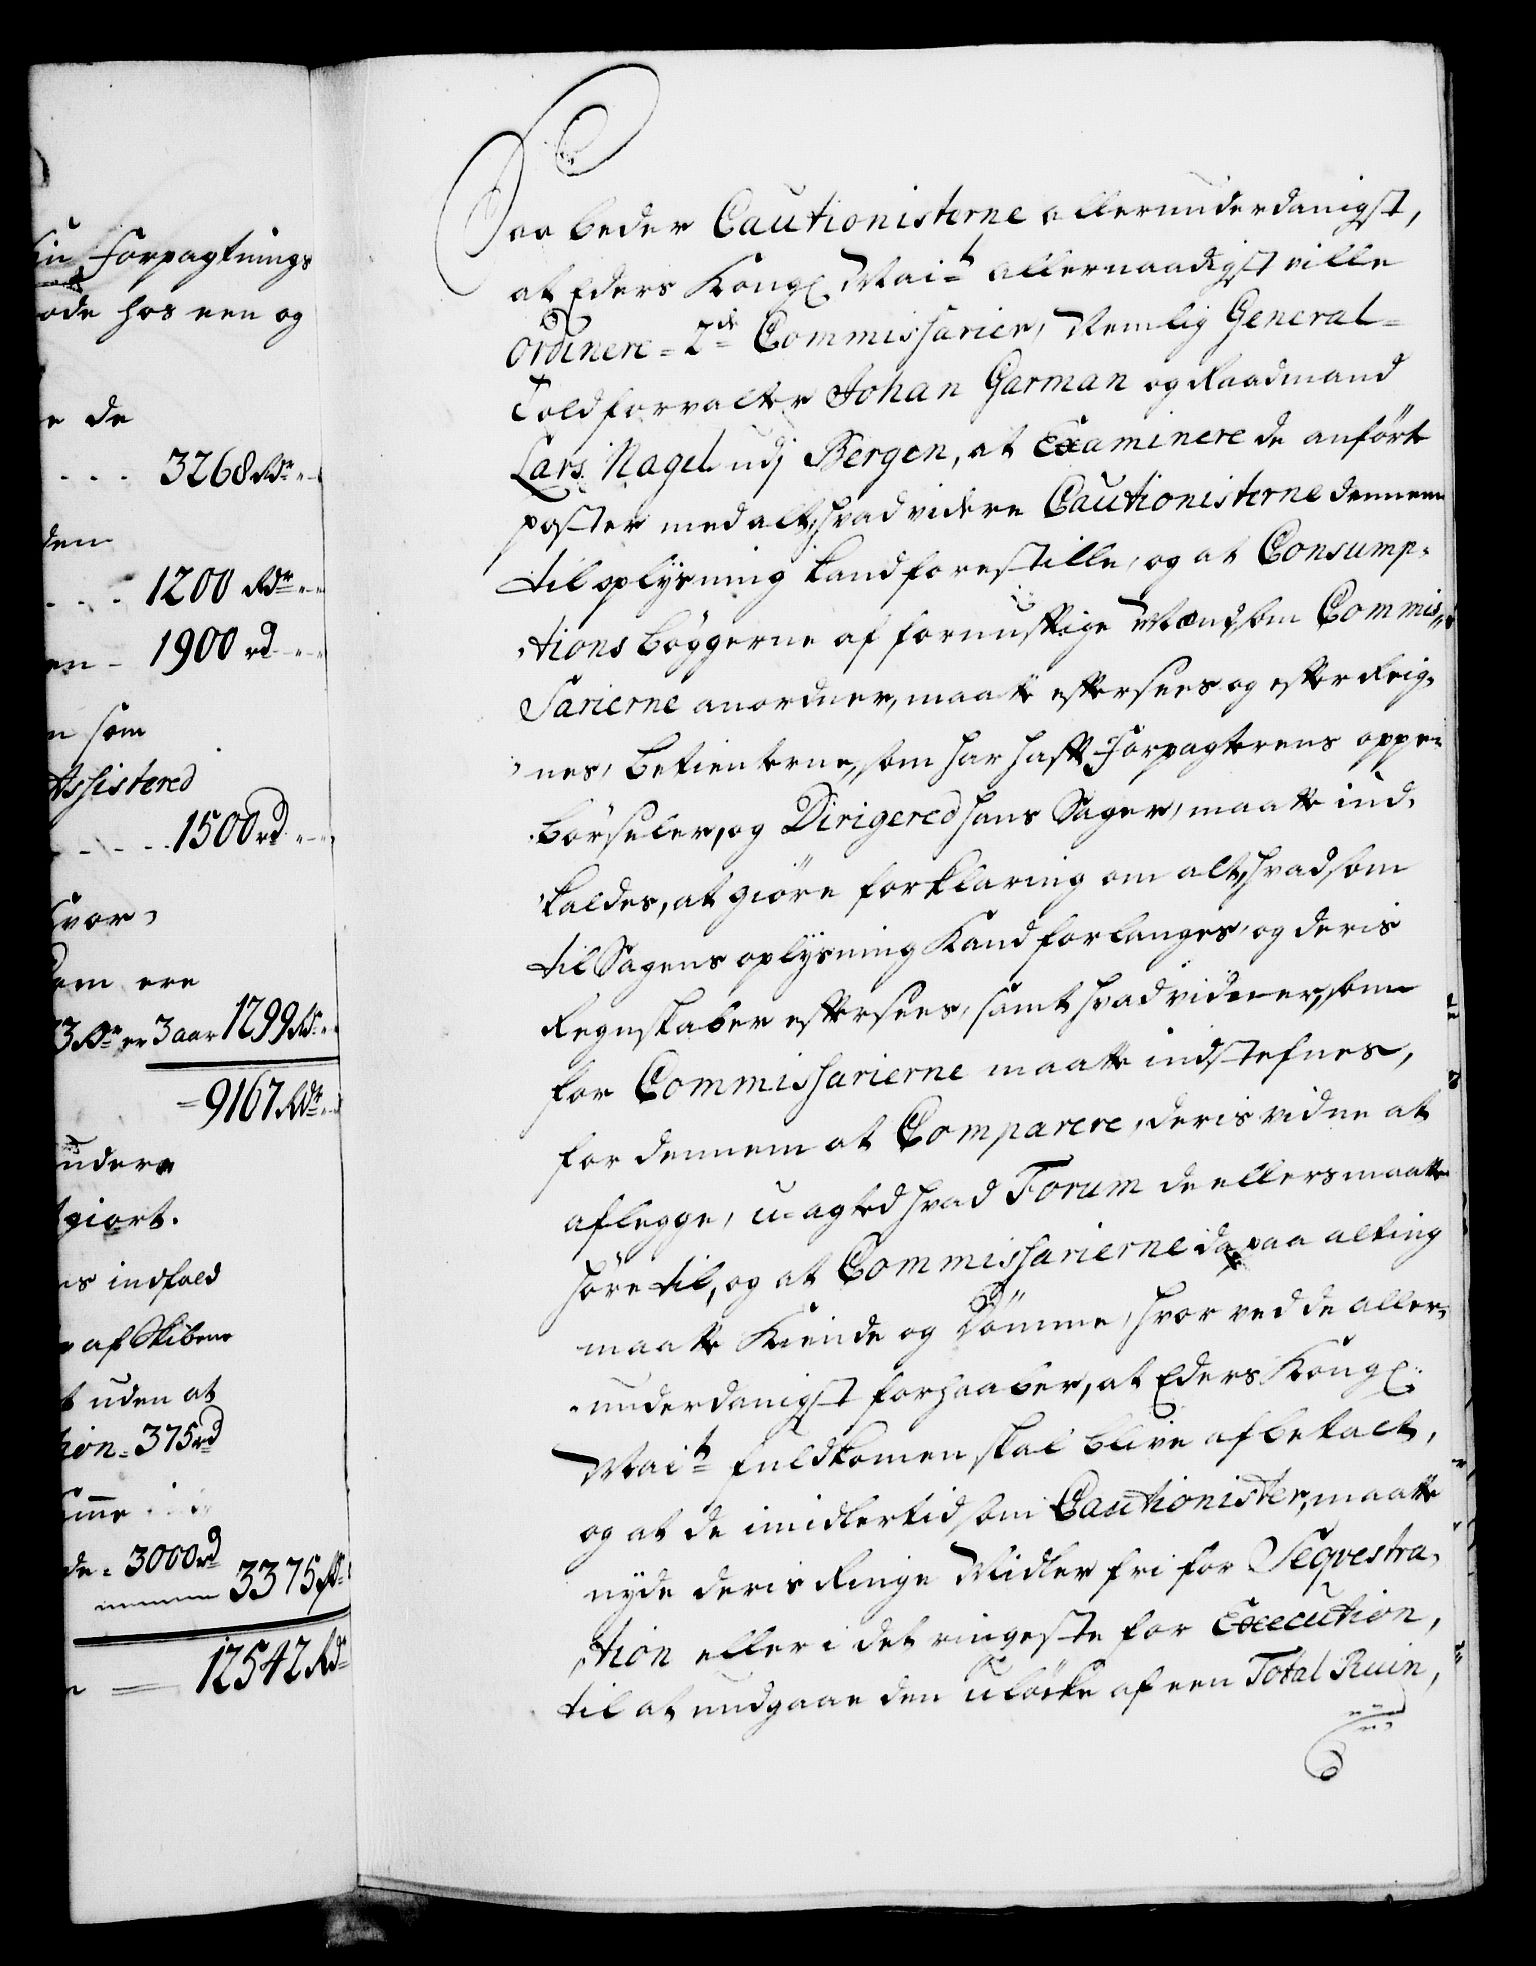 sin Forpagtnings
ode hos een og
e de
3268 Rdr
den
1200 Rdr
en - 1900 rd
n som
Assistered
1500 rd
hvor,
dem ere
3 Rdr er 3 aar 1299 Rdr
= 9167 Rdr
undere
giort.
es indfald
af Skibene
t uden at
tion = 375 rd
de = 3000 rd
3375 Rd
12542 Rdr
Saa beder Cautionisterne allerunderdanigst,
at Eders Kongl Mait allernaadigst ville
Ordinere = 2de Commissarier, Nemlig General=
Toldforvalter Johan Garman og Raadmand
Lars Nagel udj Bergen, at Examinere de anførte
poster med alt, hvad videre Cautionisterne dennem
til oplysning kand forestille, og at Consump=
tions bøggerne af fornufftige Mænd som Commis=
sarierne anordner, maatte efftersees og effterreig=
nes, betienterne, som har hafft Forpagterens oppe=
børseler, og Dirigered hans Sager, maatte ind=
kaldes, at giøre forklaring om alt, hvad som
til Sagens oplysning Kand forlanges, og deris
Regnskaber efftersees, samt hvad vidner, som
for Commissarierne maatte indstefnes,
for dennem at Comparere, deris vidne at
aflegge, u-agted hvad Forum de ellers maatte
høre til, og at Commissarierne da paa alting
maatte Kiende og Dømme, hvor ved de aller=
underdanigst forhaaber, at Eders Kongl:
Mait fuldkomen skal blive afbetalt,
og at de imidlertid som Cautionister, maatte
nyde deris Ringe Midler fri for Seqvestra=
tion eller i det ringeste for Execution,
til at undgaae den uløcke af een Total Ruin,